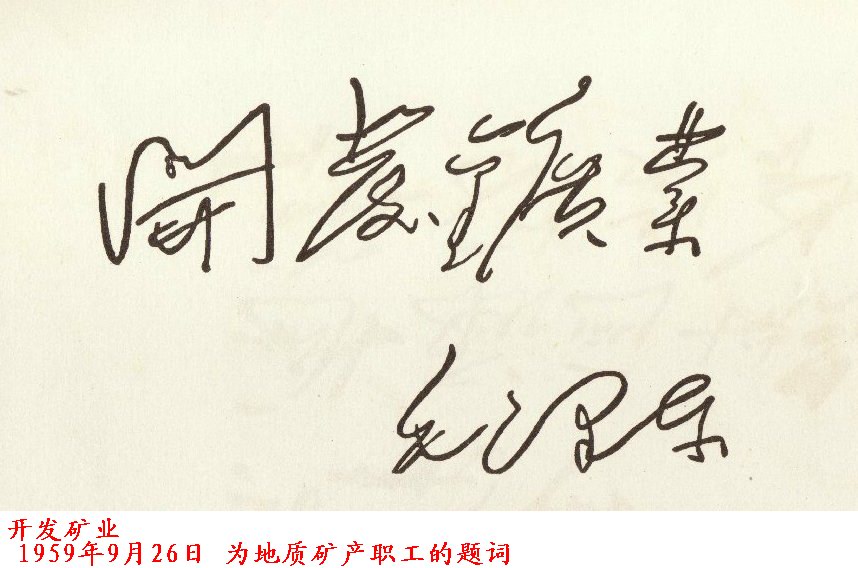 開發鑛業
毛澤东
开发矿业
1959年9月26日 为地质矿产职工的题词